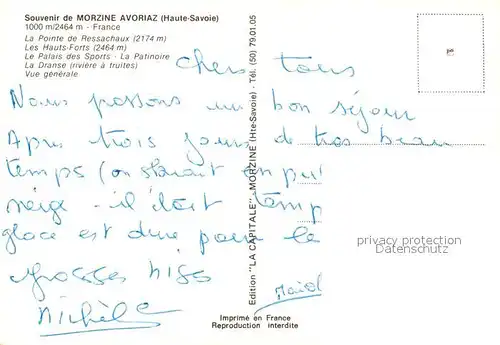 Souvenir de MORZINE AVORIAZ (Haute-Savoie)
1000 m/2464 m - France
La Pointe de Ressachaux (2174 m)
Les Hauts-Forts (2464 m)
Le Palais des Sports - La Patinoire
La Dranse (rivière à truites)
Vue générale
Chers tous
Nous passons un bon séjour
Apres trois jours de tres beau
temps (on
neige - il doit temp
glace est dure pour le
grosses bises
Michèle
Edition "LA CAPITALE" - MORZINE (Hte-Savoie) - Tél. (50) 79.01.05
Imprimé en France
Reproduction interdite
privacy protection
Datenschutz